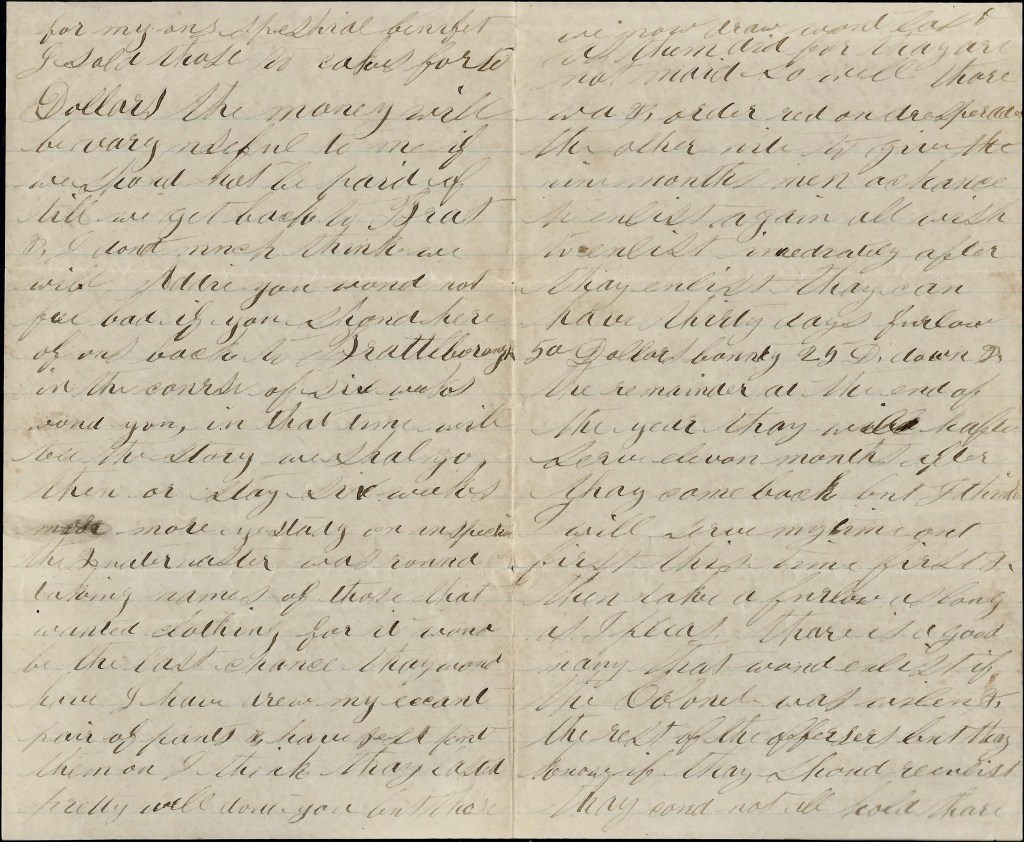 for my ons speshial benifet
I sold those 20 cakes for 10
Dollars the money will
be vary useful to me if
we shond not be paid of
till we get back to Brat
& I dont much think we
will Addie you wond not
fee bad if you shond here
of ous back to Brattiborough
in the course of six weeks
wond you, in that time will
tell the story we shal go
then or stay six weeks
more more yestaty on inspection
the Quater master was round
taking names of those that
wanted clothing for it wond
be the last chance thay wond
have I have drew my secant
pair of pants & have jest put
them on I think thay last
pretty well dont you but those
we now draw wond last
as them did for thay are
not maid so well thare
wa & order red on dresperade
the other nite to give the
nine months men a chance
to enlist again all wish
to enlist imediately after
thay enlist thay can
have thirty days furlow
50 Dollars bounty 25 D, down &
the remainder at the end of
the year thay will hafto
serve elevon months after
thay come back but I think
I will serve my time out
first this time first &
then take a furlow as long
as I pleas. thare is a good
many that wond enlist if
the Colonel was willen &
the rest of the offersers but thay
know if thay shond reenlist
thay cond not all hold thare